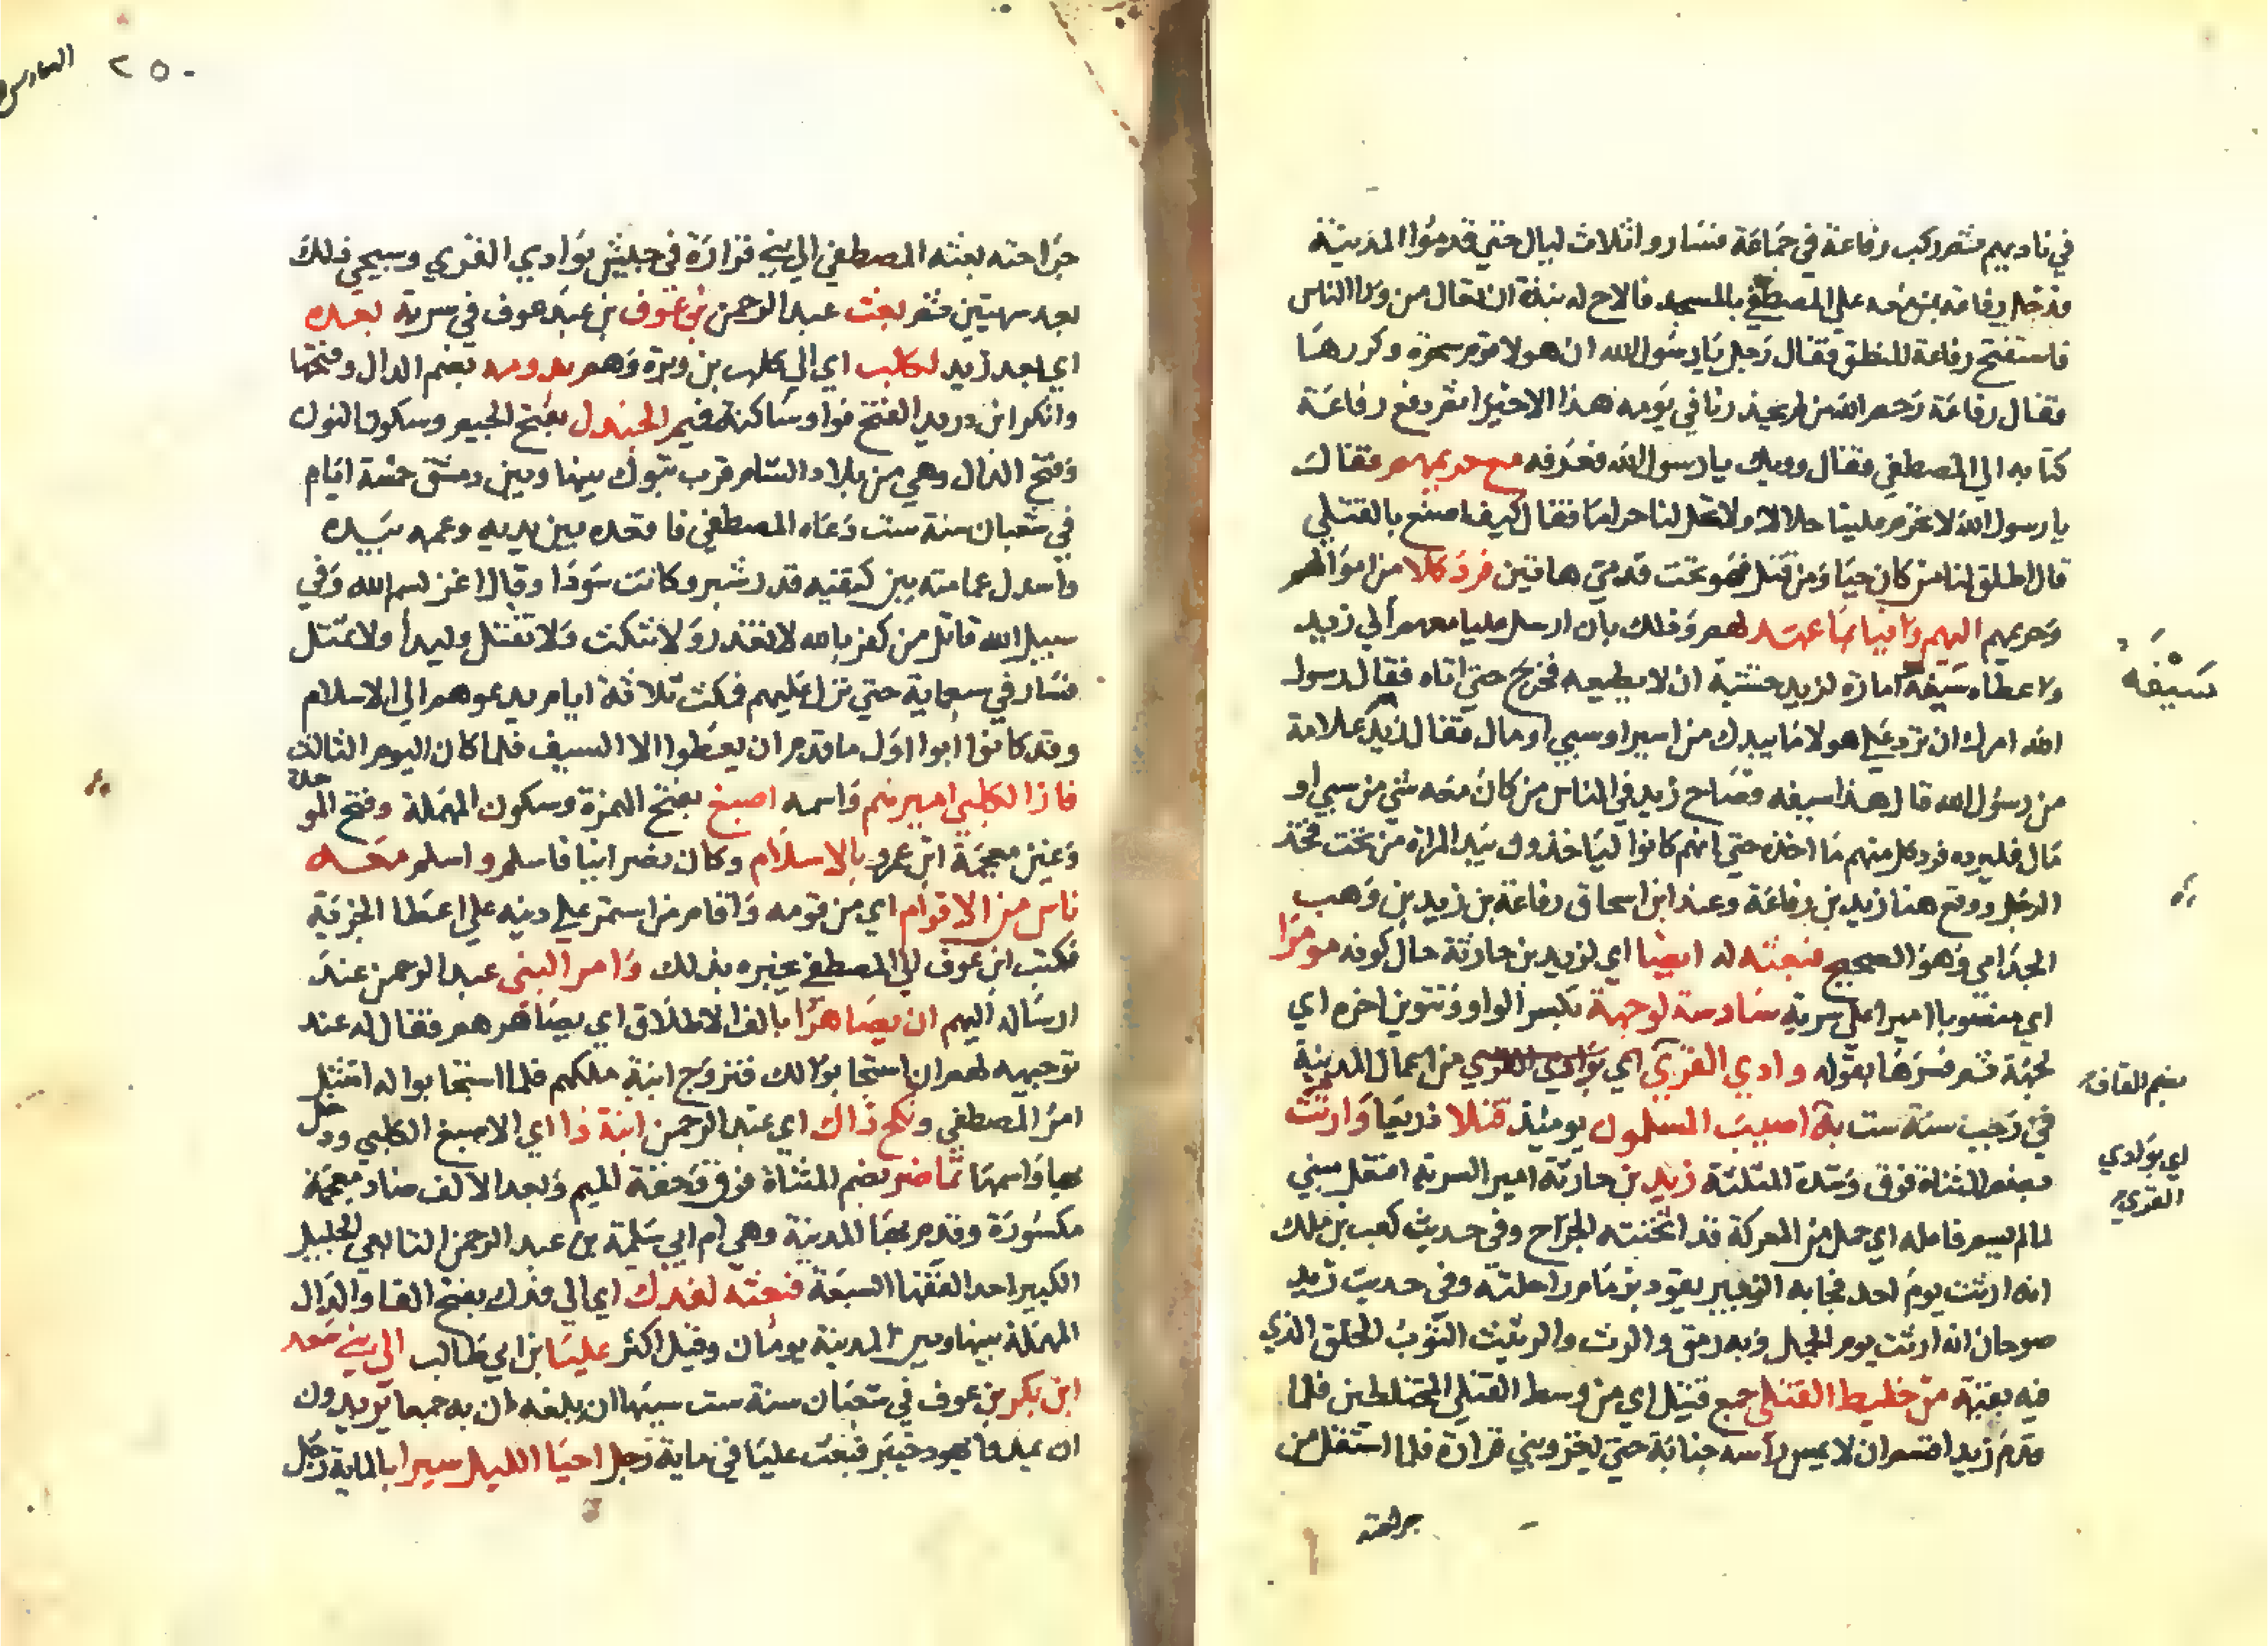 في ناديهم ثم ركب رفاعة في جماعة فساروا ثلاث ليال حتي قدموا المدينة
فدخل رفاعة بمن معه علي المصطفي بالمسجد فالاح له بيده ان تعال من ورا الناس
فاستفتح رفاعة المنطق فقال رجل يا رسول الله ان هولا قوم سحرة وكررها
فقال رفاعة رحم الله من لم يحذرنا في يومه هذا الا خيرا ثم دفع رفاعة
كتابه الي المصطفي فقال دونك يا رسول الله فعرفه مع حريمهم فقال
يا رسول الله لا تحرم علينا حلالا ولا تحل لنا حراما فقال كيف اصنع بالقتلي
قال اطلق لنا من كان حيا ومن قتل فهو تحت قدمي هاتين فرد كلا من اموالهم
وحريمهم اليهم وافيا بما عهد لهم وذلك بان ارسل عليا معهم الي زيد
واعطاه سيفه امارة لزيد خشية ان لا يطيعه فخرج حتي اتاه فقال رسول
الله امرك ان ترد علي هولا ما بيدك من اسير او سبي او مال فقال زيد علامة
من رسول الله قال هذا سيفه فصاح زيد في الناس من كان معه شي من سبي او
مال فليرده فرد كل منهم ما اخذه حتي انهم كانوا لياخذون بيد المراة من تحت فخذ
الرجل ووقع هنا زيد بن رفاعة وعند ابن اسحاق رفاعة بن زيد بن وهب
الجذامي وهو الصحيح فبعثه له ايضا اي لزيد بن حارثة حال كونه مومرا
اي منصوبا اميرا علي سرية سادسة لوجهة بكسر الواو وتنوين اخره اي
لجهة ثم فسرها بقوله وادي القري اي بوادي القري من اعمال المدينة
في رجب سنة ست به اصيب المسلمون يومئذ قتلا ذريعا وارتث
بضم المثناة فوق وشد المثلثة زيد بن حارثة امير السرية افتعل مبني
لما لم يسم فاعله اي حمل من المعركة قد اثخنته الجراح وفي حديث كعب بن ملك
انه ارتث يوم احد فجا به الزبير يقود بزمام راحلته وفي حديث زيد
صوحان انه ارتث يوم الجمل وبه رمق والرث والرثيث الثوب الخلق الذي
فيه بقية من خليط القتلي جمع قتيل اي من وسط القتلي المختلطين فلما
قدم زيد اقسم ان لا يمس راسه جنابة حتي يغزو بني فزارة فلما استقل من
جراحته
سيفه
بضم القاف
اي بوادي
القري
٢٥٠
السادس
جراحته بعثه المصطفي الي بني فزارة في جيش بوادي القري وسيجي ذلك
بعد سريتين ثم بعث عبد الرحمن بن عوف بن عبد عوف في سرية بعده
اي بعد زيد لكلب اي الي كلب بن وبرة وهم بدومة بضم الدال وفتحها
وانكر ابن دريد الفتح فواو ساكنة فميم الجندل بفتح الجيم وسكون النون
وفتح الدال وهي من بلاد الشام قرب تبوك بينها وبين دمشق خمسة ايام
في شعبان سنة ست دعاه المصطفي فاقعده بين يديه وعمه بيده
واسدل عمامته بين كتفيه قدر شبر وكانت سودا وقال اغز بسم الله وفي
سبيل الله قاتل من كفر بالله لا تغدر ولا تنكث ولا تقتل وليدا ولا تمثل
فسار في سبعماية حتي نزل عليهم فمكث ثلاثة ايام يدعوهم الي الاسلام
وقد كانوا ابوا اول ما قدم ان يعطوا الا السيف فلما كان اليوم الثالث
فاز الكلبي اميرهم واسمه اصبغ بفتح الهمزة وسكون المهملة وفتح الموحدة
وغين معجمة ابن عمرو بالاسلام وكان نصرانيا فاسلم واسلم معه
ناس من الاقوام اي من قومه واقام من استمر علي دينه علي اعطا الجزية
فكتب ابن عوف الي المصطفي يخبره بذلك وامر النبي عبد الرحمن عند
ارساله اليهم ان يصاهرا بالف الاطلاق اي يصاهرهم فقال له عند
توجيهه لهم ان استجابوا لك فتزوج ابنة ملكهم فلما استجابوا له امتثل
امر المصطفي ونكح ذاك اي عبد الرحمن ابنة ذا اي الاصبغ الكلبي ودخل
بها واسمها تماضر بضم المثناة فوق وخفة الميم وبعد الالف ضاد معجمة
مكسورة وقدم بها المدينة وهي ام ابي سلمة بن عبد الرحمن التابعي الجليل
الكبير احد الفقها السبعة فبعثه لفدك اي الي فدك بفتح الفا والدال
المهملة بينها وبين المدينة يومان وقيل اكثر عليا بن ابي طالب الي بني سعد
ابن بكر بن عوف في شعبان سنة ست سببها ان بلغه ان به جمعا يريدون
ان يمدوا يهود خيبر فبعث عليا في ماية رجل احيا الليل سيرا بالماية رجل